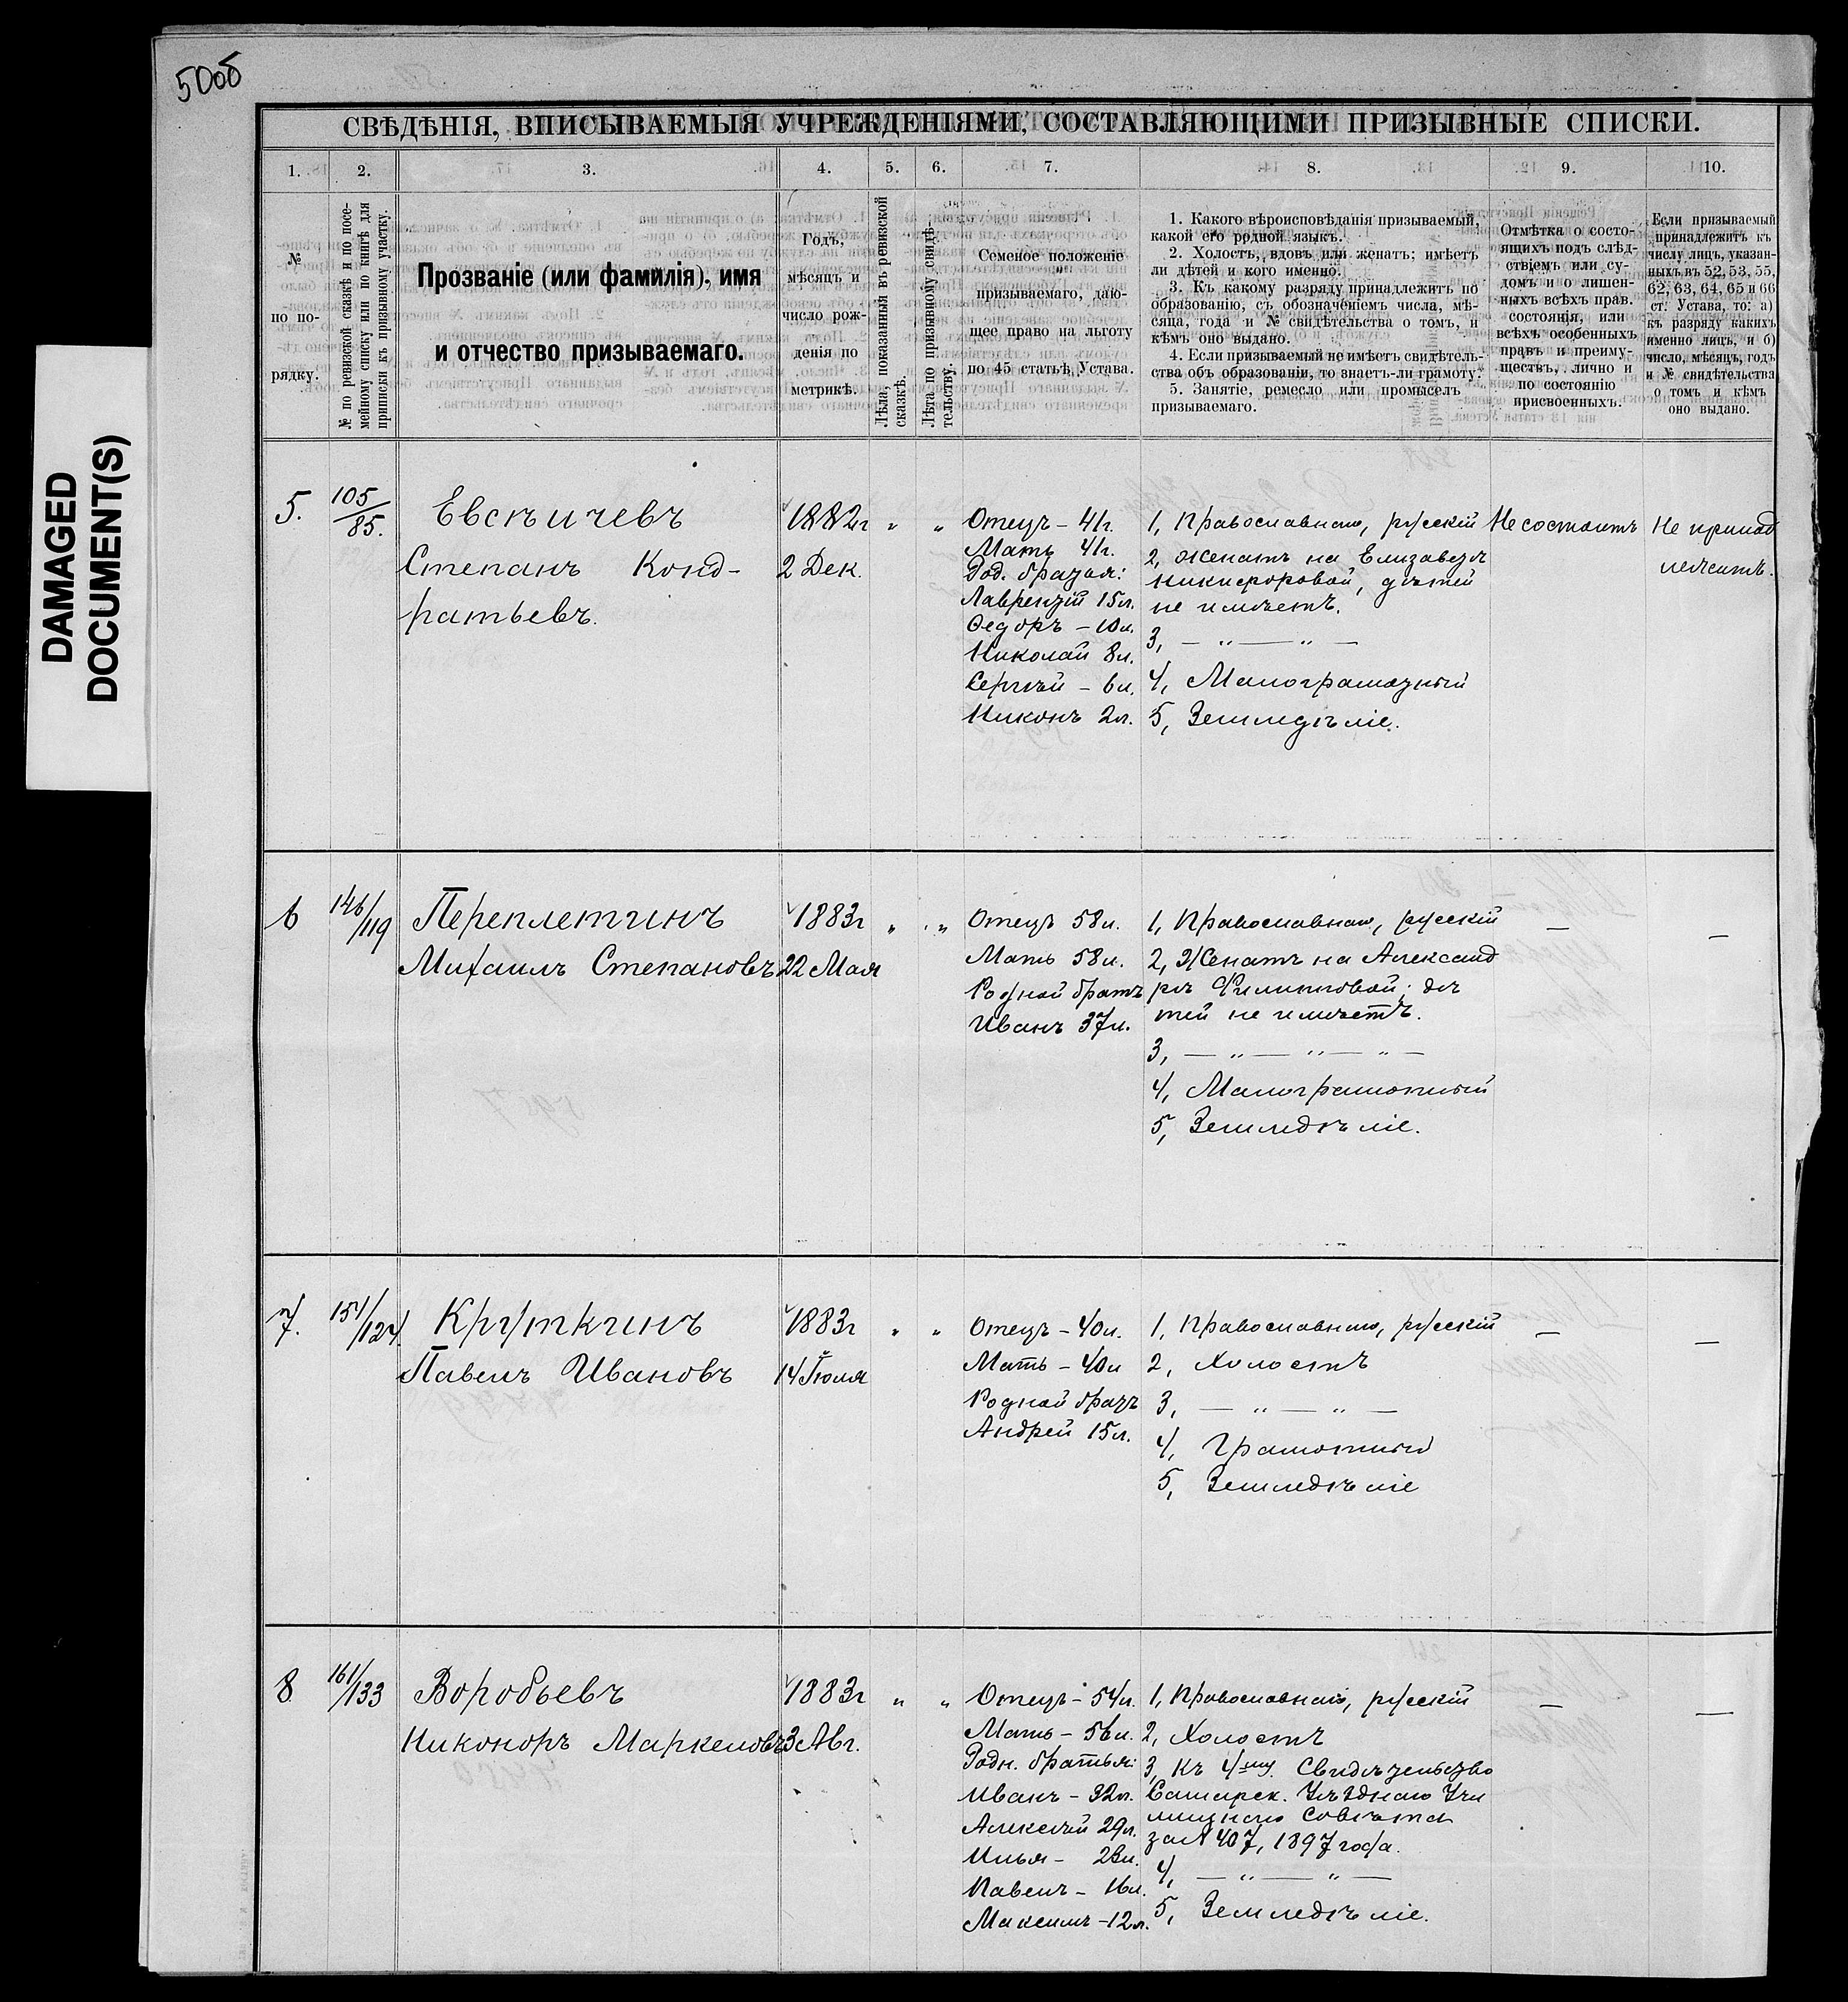 50об
DAMAGED
DOCUMENT(S)
СВѢДѢНІЯ, ВПИСЫВАЕМЫЯ УЧРЕЖДЕНІЯМИ, СОСТАВЛЯЮЩИМИ ПРИЗЫВНЫЕ СПИСКИ.
1. 2. 3. 4. 5. 6. 7. 8. 9. 10.
№
по по-
рядку.
№ по ревизской сказкѣ и по посе-
мейному списку или по книгѣ для
приписки къ призывному участку.
Прозваніе (или фамилія), имя
и отчество призываемаго.
Годъ,
мѣсяцъ и
число рож-
денія по
метрикѣ.
Лѣта, показанныя въ ревизской
сказкѣ.
Лѣта по призывному свидѣ-
тельству.
Семеное положеніе
призываемаго, даю-
щее право на льготу
по 45 статьѣ Устава.
1. Какого вѣроисповѣданія призываемый,
какой его родной языкъ.
2. Холостъ, вдовъ или женатъ; имѣетъ
ли дѣтей и кого именно.
3. Къ какому разряду принадлежитъ по
образованію, съ обозначеніемъ числа, мѣ-
сяца, года и № свидѣтельства о томъ, и
кѣмъ оно выдано.
4. Если призываемый не имѣетъ свидѣтель-
ства объ образованіи, то знаетъ-ли грамоту.
5. Занятіе, ремесло или промыселъ
призываемаго.
Отмѣтка о состо-
ящихъ подъ слѣд-
ствіемъ или су-
домъ и о лишен-
ныхъ всѣхъ прав.
состоянія, или
всѣхъ особенныхъ
правъ и преиму-
ществъ, лично и
по состоянію
присвоенныхъ.
Если призываемый
принадлежитъ къ
числу лицъ, указан-
ныхъ въ 52, 53, 55,
62, 63, 64, 65 и 66
ст. Устава, то: а)
къ разряду какихъ
именно лицъ, и б)
число, мѣсяцъ, годъ
и № свидѣтельства
о томъ и кѣмъ
оно выдано.
5.
105/85.
Евсѣичевъ
Степанъ Конд-
ратьевъ.
1882г
2 Дек.
" "
Отецъ - 41г.
Мать 41г.
Род. братья:
Лаврентій 15л.
Ѳедоръ - 10л.
Николай 8л.
Сергѣй - 6л.
Никонъ 2л.
1, Православнаго, русскій
2, Женатъ на Елизаветѣ
Никифоровой, дѣтей
не имѣетъ.
3, — " — " —
4, Малограмотный
5, Земледѣліе.
Не состоитъ
Не принад
лежитъ.
6
146/119
Переплетчинъ
Михаилъ Степановъ
1883г
22 Мая
" "
Отецъ 58л.
Мать 58л.
Родной братъ
Иванъ 37л.
1, Православнаго, русскій
2, Женатъ на Александ
рѣ Филипповой; дѣ
тей не имѣетъ.
3, — " — " — " —
4, Малограмотный
5, Земледѣліе.
—
—
7.
151/124.
Круткинъ
Павелъ Ивановъ
1883г
14 Іюля
" "
Отецъ - 40л.
Мать - 40л
Родной братъ
Андрей 15л.
1, Православнаго, русскій
2, Холостъ
3, — " — " —
4, Грамотный
5, Земледѣліе
—
—
8
161/133
Воробьевъ
Никоноръ Маркеловъ
1883г
3 Авг.
" "
Отецъ - 54л.
Мать - 56л.
Родн. братья:
Иванъ - 32л.
Алексѣй 29л.
Илья - 23л.
Павелъ - 16л.
Максимъ - 12л.
1, Православнаго, русскій
2, Холостъ
3, Къ 4му. Свидѣтельство
Уѣзднаго Учи
лищнаго Совѣта
за № 407, 1897 года.
4, — " — " —
5, Земледѣліе.
—
—